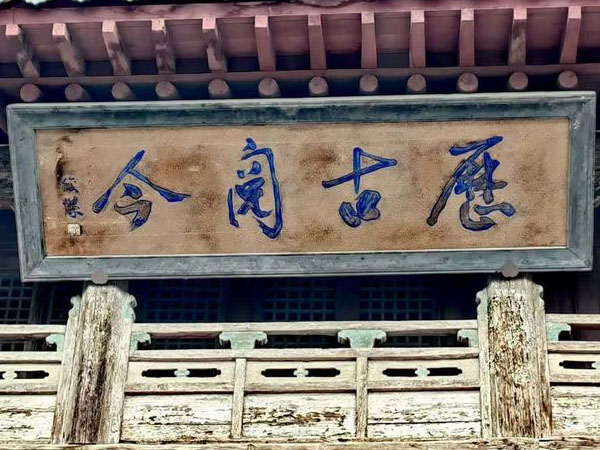 歷古閱今